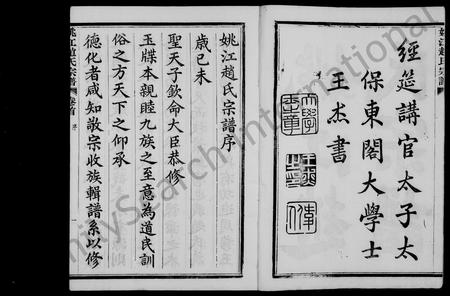 經筵講官太子太
保東閣大學士
王杰書
姚江趙氏宗譜序
歲己未
聖天子欽命大臣恭修
玉牒本親睦九族之至意為道民訓
俗之方天下之仰承
德化者咸知敬宗收族輯譜系以修
姚江趙氏宗譜
卷首
序
一